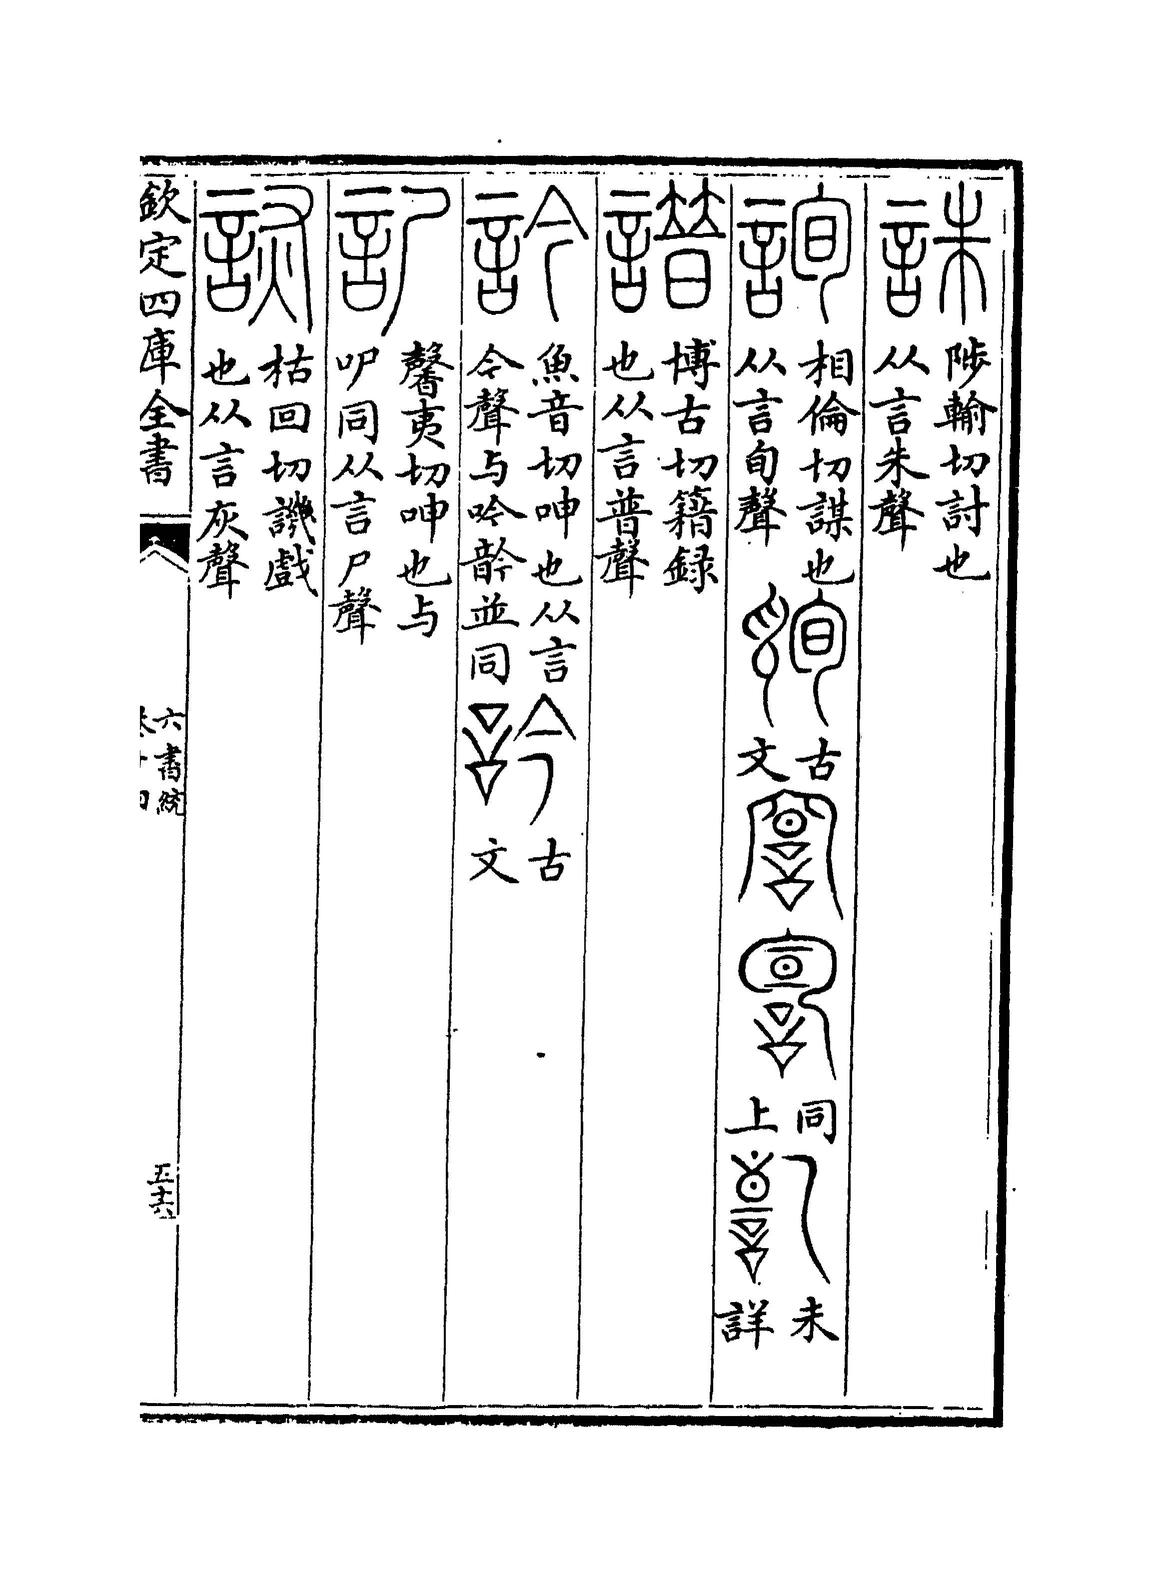 誅 陟輸切討也从言朱聲
詢 相倫切謀也从言旬聲 古文 同上 未詳
譜 博古切籍録也从言普聲
訡 魚音切呻也从言今聲与吟䪩並同 古文
馨夷切呻也与吚同从言尸聲
詼 枯回切譏戲也从言灰聲
欽定四庫全書
六書統
五十六